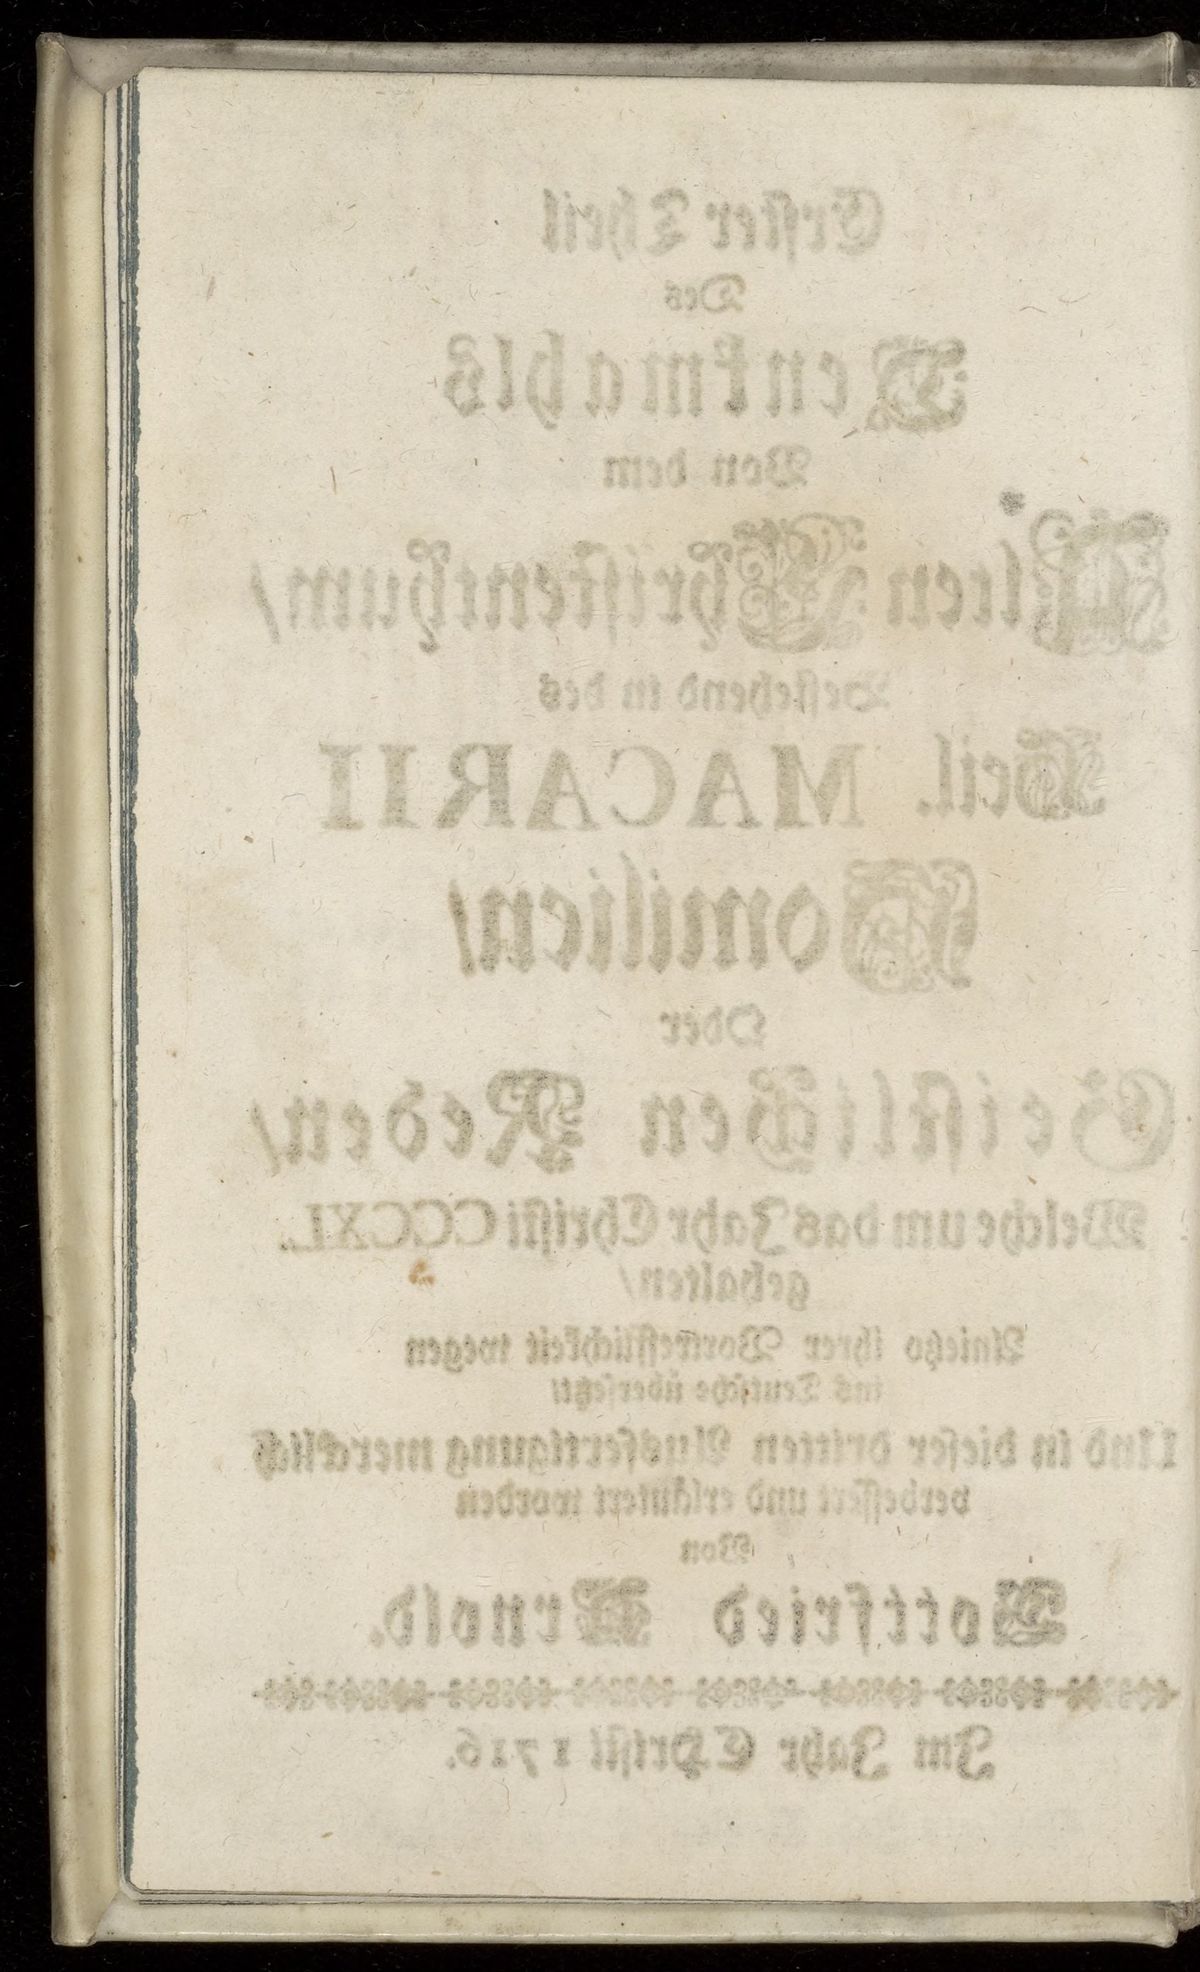 Erster Theil
Des
Denkmahls
Von dem
Alten Christenthum/
Bestehend in des
Heil. MACARII
Homilien/
Oder
Geistlichen Reden/
Welche um das Jahr Christi CCCXL.
gehalten/
Anietzo ihrer Vortrefflichkeit wegen
ins Teutsche übersetzt/
Und in dieser dritten Ausfertigung mercklich
verbessert und erläutert worden
Von
Gottfried Arnold.
Im Jahr Christi 1716.